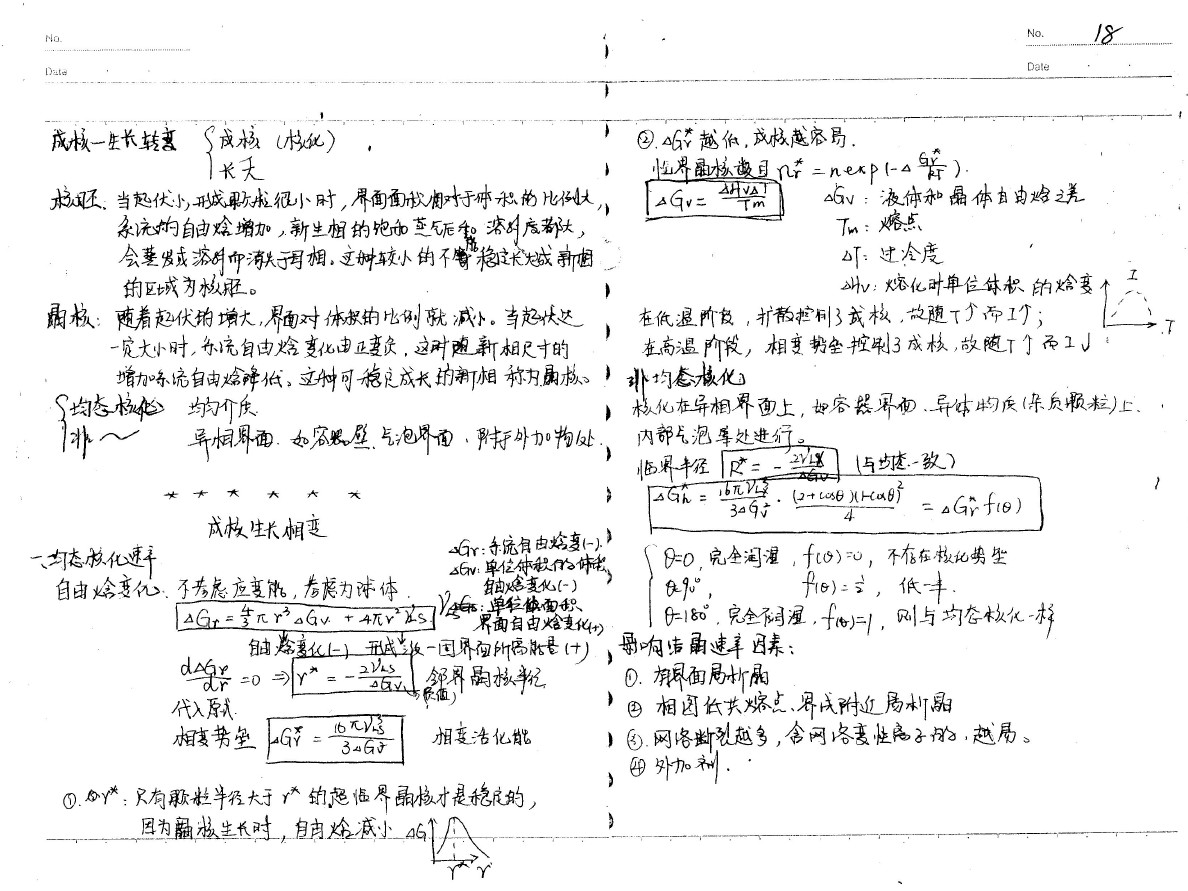 No.
Date
成核—生长转变 { 成核 (核化)
长大
核胚: 当起伏小,形成颗粒很小时,界面面积相对于体积的比例大,
系统的自由焓增加,新生相的饱和蒸气压和溶剂度都大,
会蒸发或溶剂而消失于母相。这种较小的不能稳定长大成新相
的区域为核胚。
晶核: 随着起伏的增大,界面对体积的比例就减小。当起伏达
一定大小时,系统自由焓变化由正变负,这时随新相尺寸的
增加系统自由焓降低。这种可稳定成长的新相称为晶核。
{ 均态核化 均匀介质
非~ 异相界面. 如容器壁. 气泡界面、附于外加物处.
* * * * * *
成核生长相变
一、均态核化速率
自由焓变化: 不考虑应变能, 考虑为球体.
ΔGr: 系统自由焓变(-).
ΔGv: 单位体积的体积
自由焓变化(-)
γLS: 单位面积
界面自由焓变化(+)
ΔGr = 4/3 πr³ΔGv + 4πr²γLS
自由焓变化(-) 形成 一固界面所需能量(+)
dΔGr/dr = 0 ⇒ r* = - 2γLS/ΔGv 邻界晶核半径
(负值)
代入原式.
相变势垒 ΔGr* = 16πγLS³/3ΔGv² 相变活化能
①. r*: 只有颗粒半径大于 r* 的超临界晶核才是稳定的,
因为晶核生长时, 自由焓减小 ΔG
r* r
No. 18
Date
②. ΔGr* 越低, 成核越容易.
临界晶核数目 nr* = n exp(-Δ Gr*/RT).
ΔGv = ΔHvΔT/Tm
ΔGv: 液体和晶体自由焓之差
Tm: 熔点
ΔT: 过冷度
ΔHv: 熔化时单位体积的焓变
I
T
在低温阶段, 扩散控制了成核, 故随T↑而I↑;
在高温阶段, 相变势垒控制了成核, 故随T↑而I↓
非均态核化:
核化在异相界面上, 如容器界面、异体物质(杂质颗粒)上.
内部气泡等处进行。
临界半径 R* = - 2γLS/ΔGv (与均态一致)
ΔGh* = 16πγLS³/3ΔGv² · (2+cosθ)(1-cosθ)²/4 = ΔGr* f(θ)
θ=0, 完全润湿, f(θ)=0, 不存在核化势垒
θ=90°, f(θ)=½, 低一半.
θ=180°, 完全不润湿, f(θ)=1, 则与均态核化一样
影响结晶速率因素:
①. 有界面易析晶
② 相图低共熔点、界线附近易析晶
③. 网络断裂越多, 含网络变性离子的, 越易。
④ 外加剂.